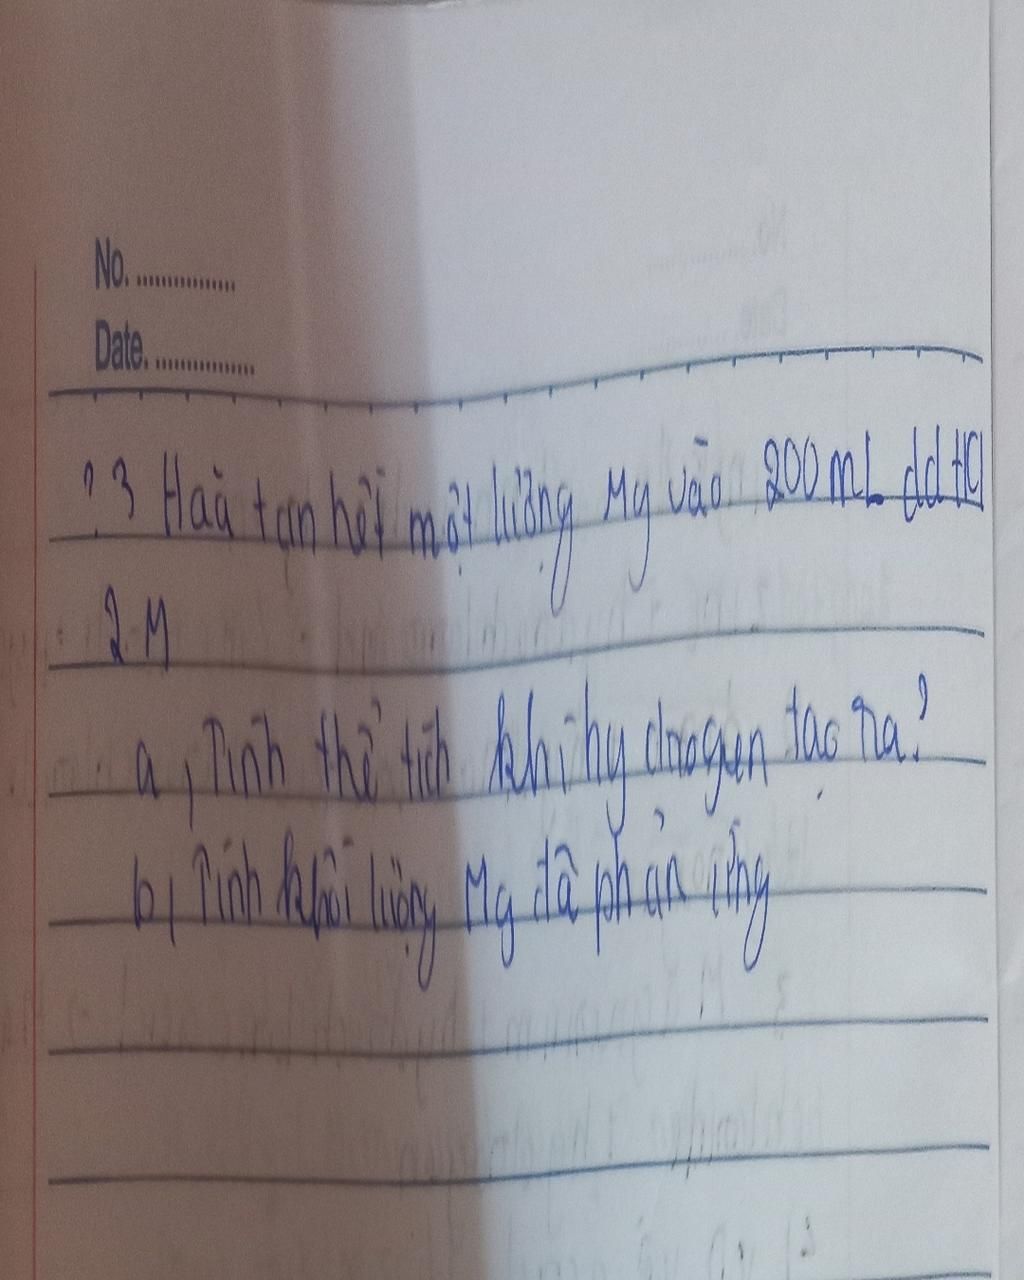 No. ...............
Date. ...............
? 3 Hoà tan hết một lượng Mg vào 200 mL dd HCl
2 M
a, Tính thể tích khí hydrogen tạo ra?
b, Tính khối lượng Mg đã phản ứng